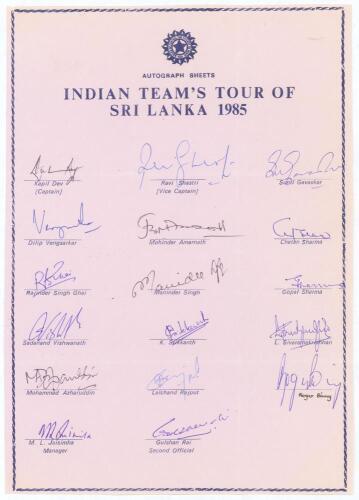 AUTOGRAPH SHEETS
INDIAN TEAM'S TOUR OF
SRI LANKA 1985
Kapil Dev
(Captain)
Ravi Shastri
(Vice Captain)
Sunil Gavaskar
Dilip Vengsarkar
Mohinder Amarnath
Chethn Sharma
Rajinder Singh Ghai
Maninder Singh
Gopal Sharma
Sadanand Vishwanath
K. Srikkanth
L. Sivaramakrishnan
Mohammed Azharuddin
Lalchand Rajput
Roger Binny
M. L. Jaisimha
Manager
Gulshan Rai
Second Official